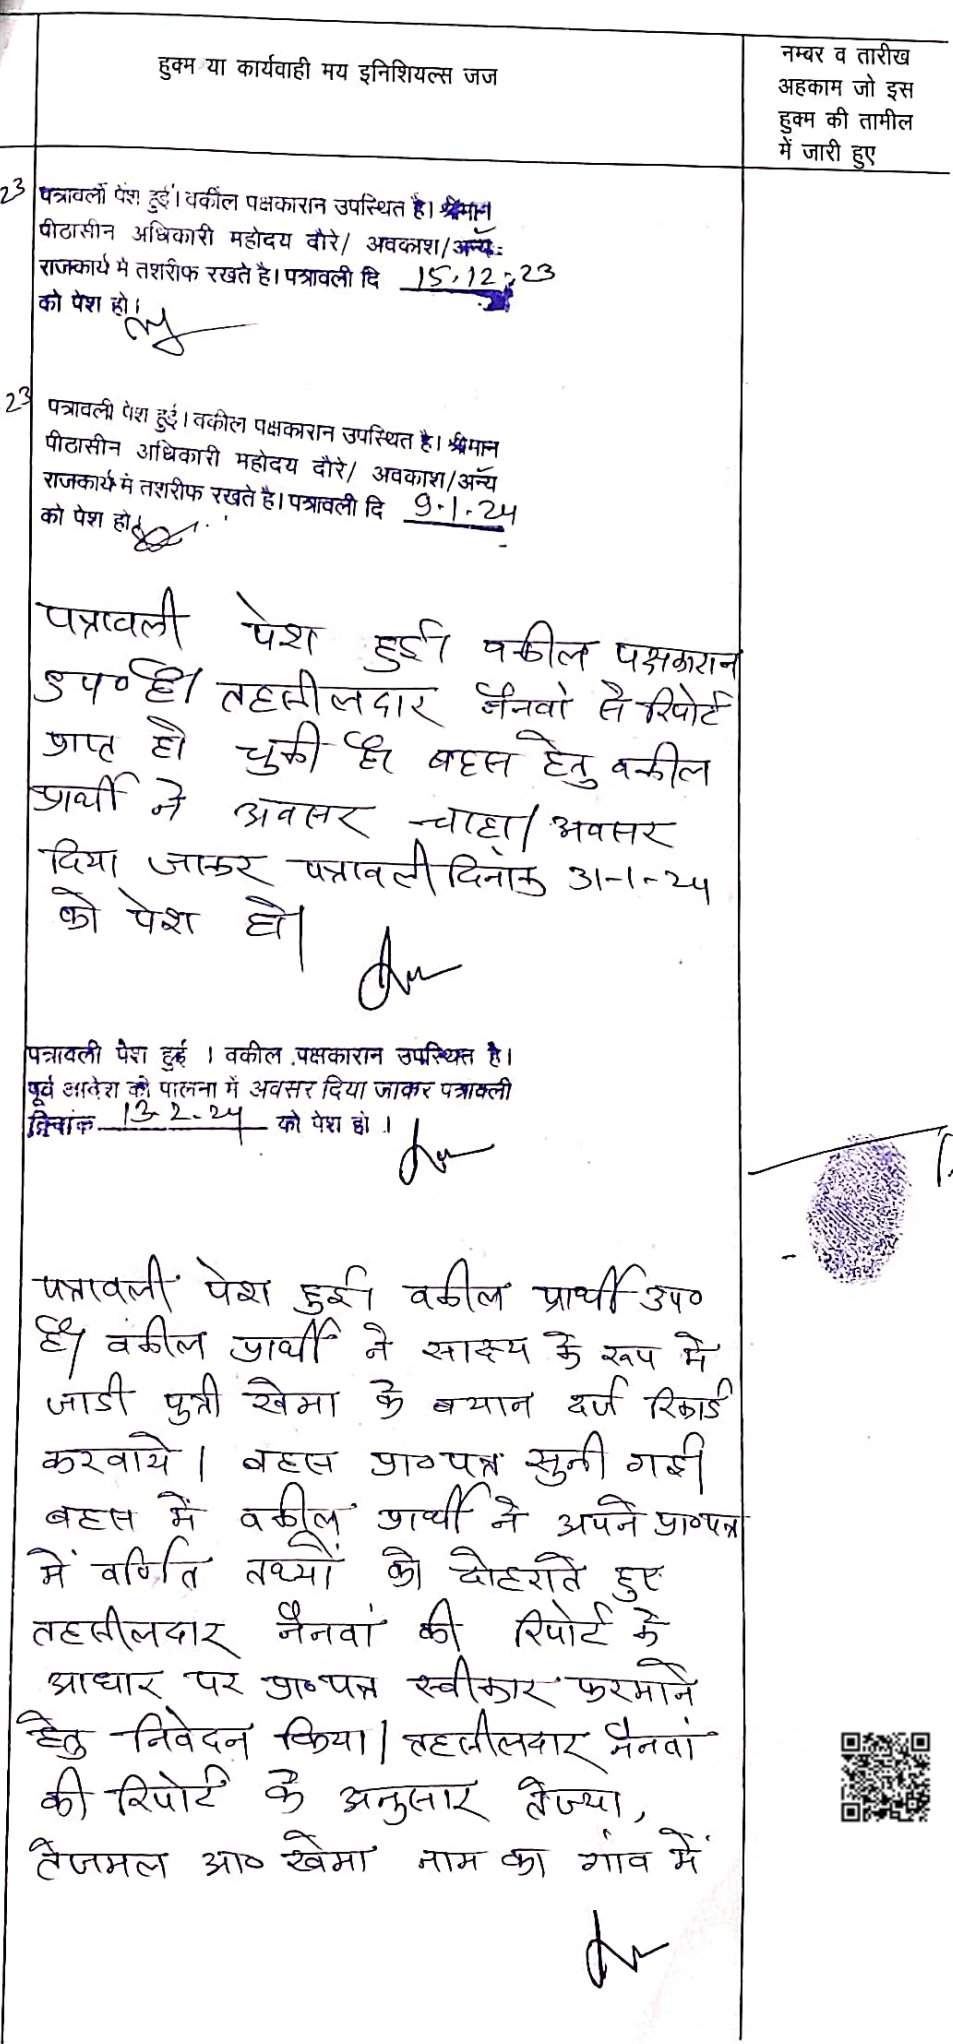 हुक्म या कार्यवाही मय इनिशियल्स जज
नम्बर व तारीख
अहकाम जो इस
हुक्म की तामील
में जारी हुए
23
पत्रावली पेश हुई। वकील पक्षकारान उपस्थित है। श्रीमान
पीठासीन अधिकारी महोदय दौरे/ अवकाश/अन्य
राजकार्य मे तशरीफ रखते है। पत्रावली दि 15.12.23
को पेश हो।
23
पत्रावली पेश हुई। वकील पक्षकारान उपस्थित है। श्रीमान
पीठासीन अधिकारी महोदय दौरे/ अवकाश/अन्य
राजकार्य मे तशरीफ रखते है। पत्रावली दि 9.1.24
को पेश हो
पत्रावली पेश हुई। वकील पक्षकारान
उप० है। तहसीलदार नैनवां से रिपोर्ट
प्राप्त हो चुकी है। बहस हेतु वकील
प्रार्थी ने अवसर चाहा। अवसर
दिया जाकर पत्रावली दिनांक 31-1-24
को पेश हो।
पत्रावली पेश हुई । वकील पक्षकारान उपस्थित है।
पूर्व आदेश की पालना में अवसर दिया जाकर पत्रावली
दिनांक 13-2-24 को पेश हो ।
पत्रावली पेश हुई। वकील प्रार्थी उप०
है। वकील प्रार्थी ने साक्ष्य के रूप में
जाडी पुत्री खेमा के बयान दर्ज रिकार्ड
करवाये । बहस प्रा०पत्र सुनी गई।
बहस में वकील प्रार्थी ने अपने प्रा०पत्र
में वर्णित तथ्यों को दोहराते हुए
तहसीलदार नैनवां की रिपोर्ट के
आधार पर प्रा०पत्र स्वीकार फरमाने
हेतु निवेदन किया। तहसीलदार नैनवां
की रिपोर्ट के अनुसार तेज्या,
तेजमल आ० खेमा नाम का गांव में